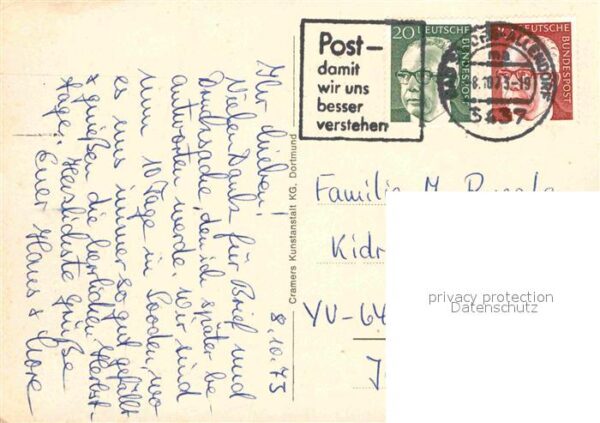 8.10.73
Ihr Lieben!
Vielen Dank für Brief und
Drucksache, den ich später be-
antworten werde. Wir sind
nun 10 Tage in Sooden, wo
es uns immer so gut gefällt
& genießen die herrlichen Herbst-
tage. Herzlichste Grüße
Euer Hans &
Cramers Kunstanstalt KG, Dortmund
Post–
damit
wir uns
besser
verstehen
20 DEUTSCHE
BUNDESPOST
DEUTSCHE
BUNDESPOST
8.10.73-19
3437
Familie M.
Kidr
YU-64
J
privacy protection
Datenschutz